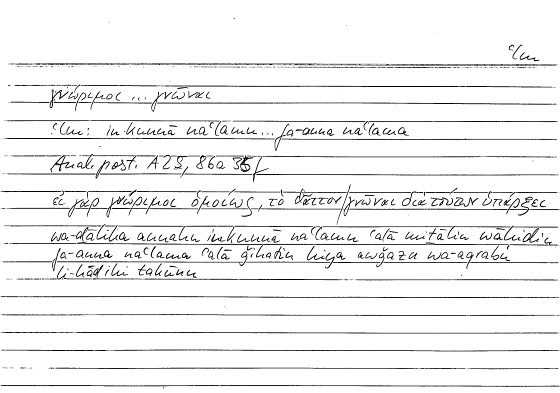 ʿlm
γνώριμος ... γνῶναι
ʿlm: in kunnā naʿlamu ... fa-anna naʿlama
Anal. post. A 25, 86a 35 f
εἰ γὰρ γνώριμος ὁμοίως, τὸ θᾶττον/γνῶναι διὰ τούτων ὑπάρξει
wa-ḏālika annahu in kunnā naʿlamu ʿalā miṯālin wāḥidin
fa-anna naʿlama ʿalā ǧihatin hiya awǧazu wa-aqrabu
li-hāḏihi takūnu